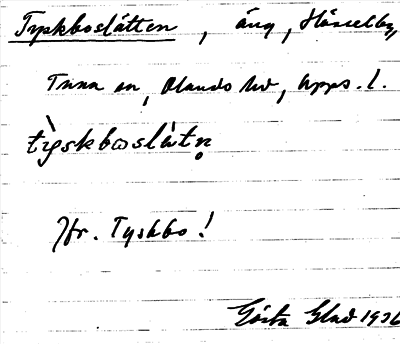 Tyskboslåtten, äng, Hässelby,
Tuna sn, Olands hd, Upps. l.
tỳskboslàtṇ
Jfr. Tyskbo!
Gösta Glad 1936